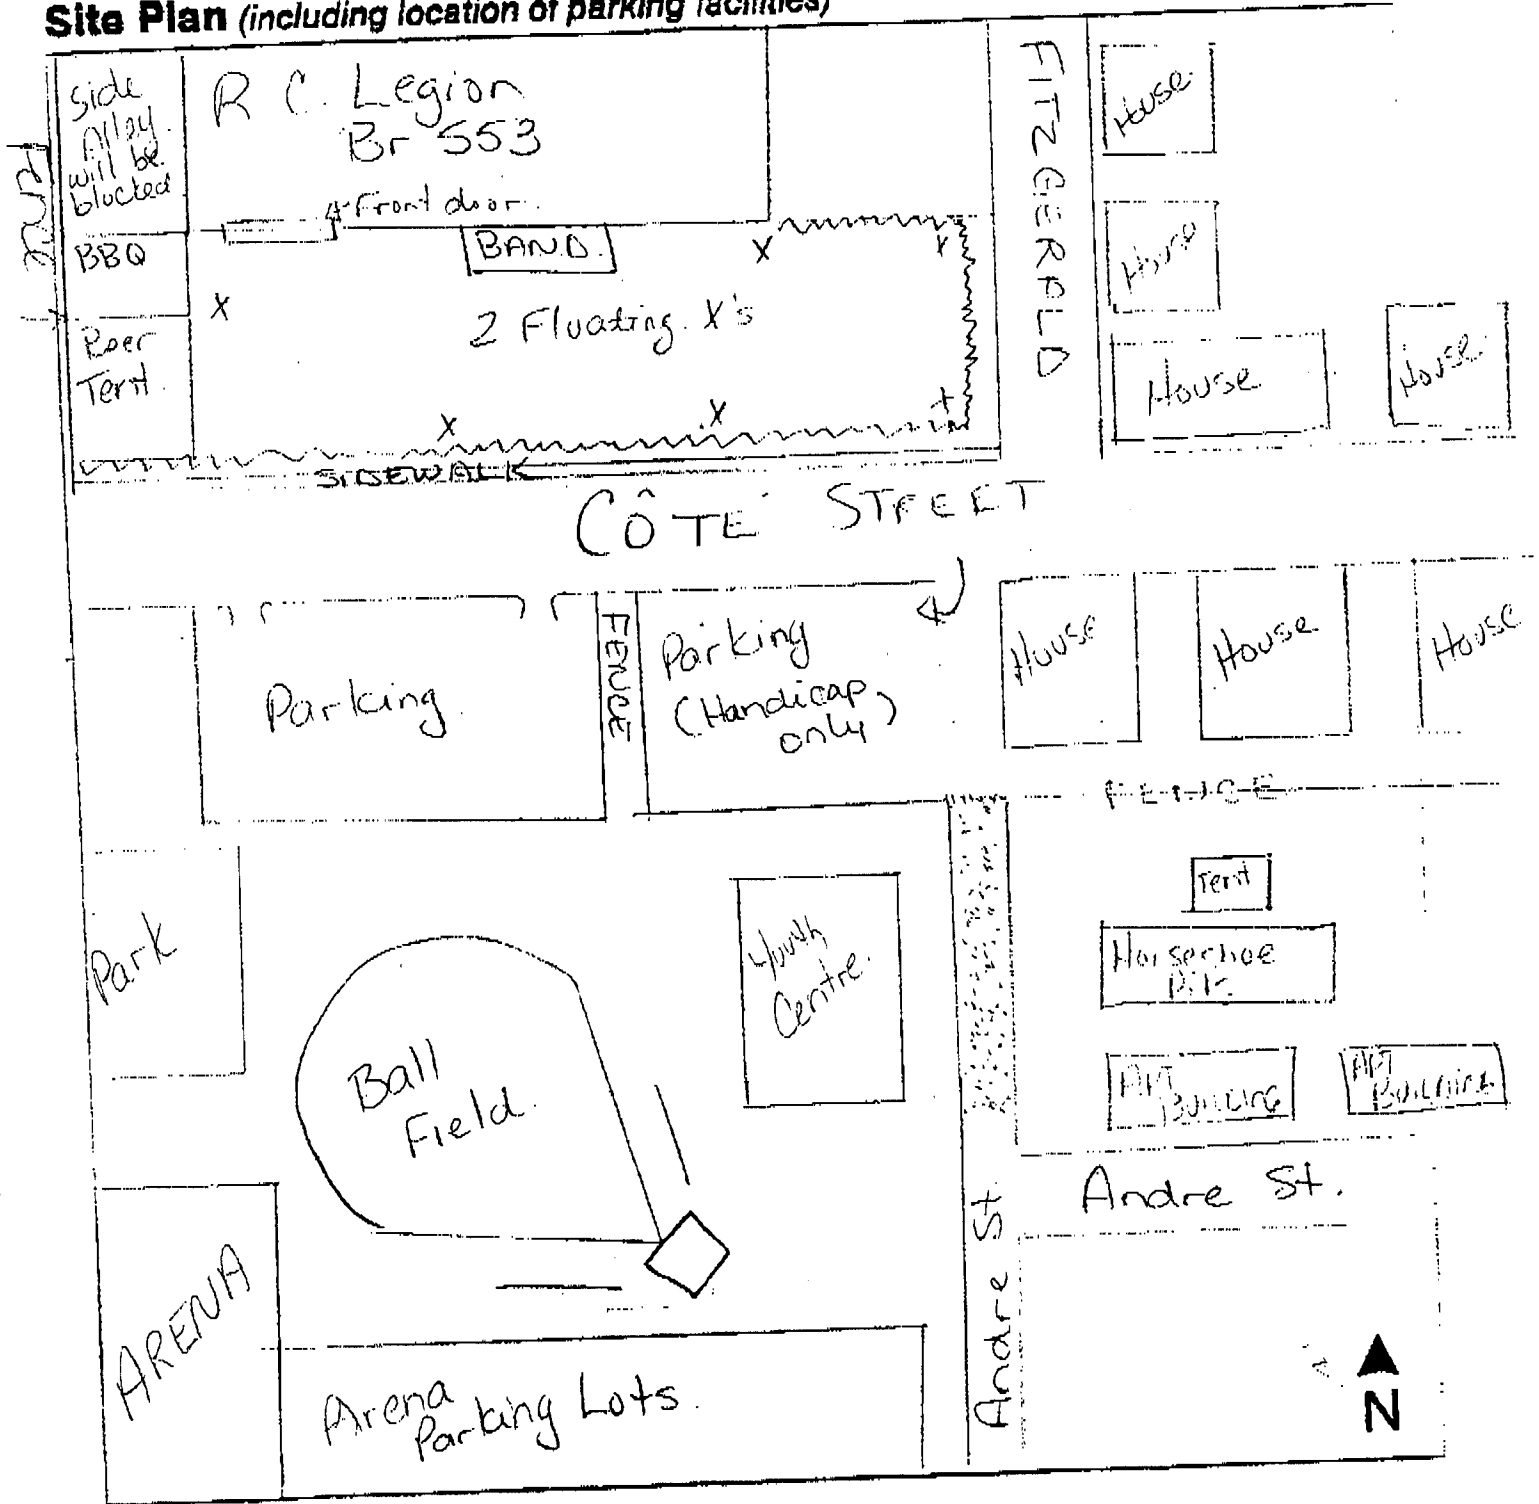 Site Plan (including location of parking facilities)
Side
Alley
will be
blocked
R C. Legion
Br 553
Front door
BBQ
BAND
X
X
X
2 Floating X's
Beer
Tent
X
X
X
SIDEWALK
FITZGERALD
House
House
House
House
CÔTÉ STREET
Parking
FENCE
Parking
(Handicap
only)
House
House
House
FENCE
Park
Youth
Centre
Tent
Horseshoe
Pits
Ball
Field
APT
BUILDING
APT
BUILDING
Andre St.
Andre St
ARENA
Arena
Parking Lots
N